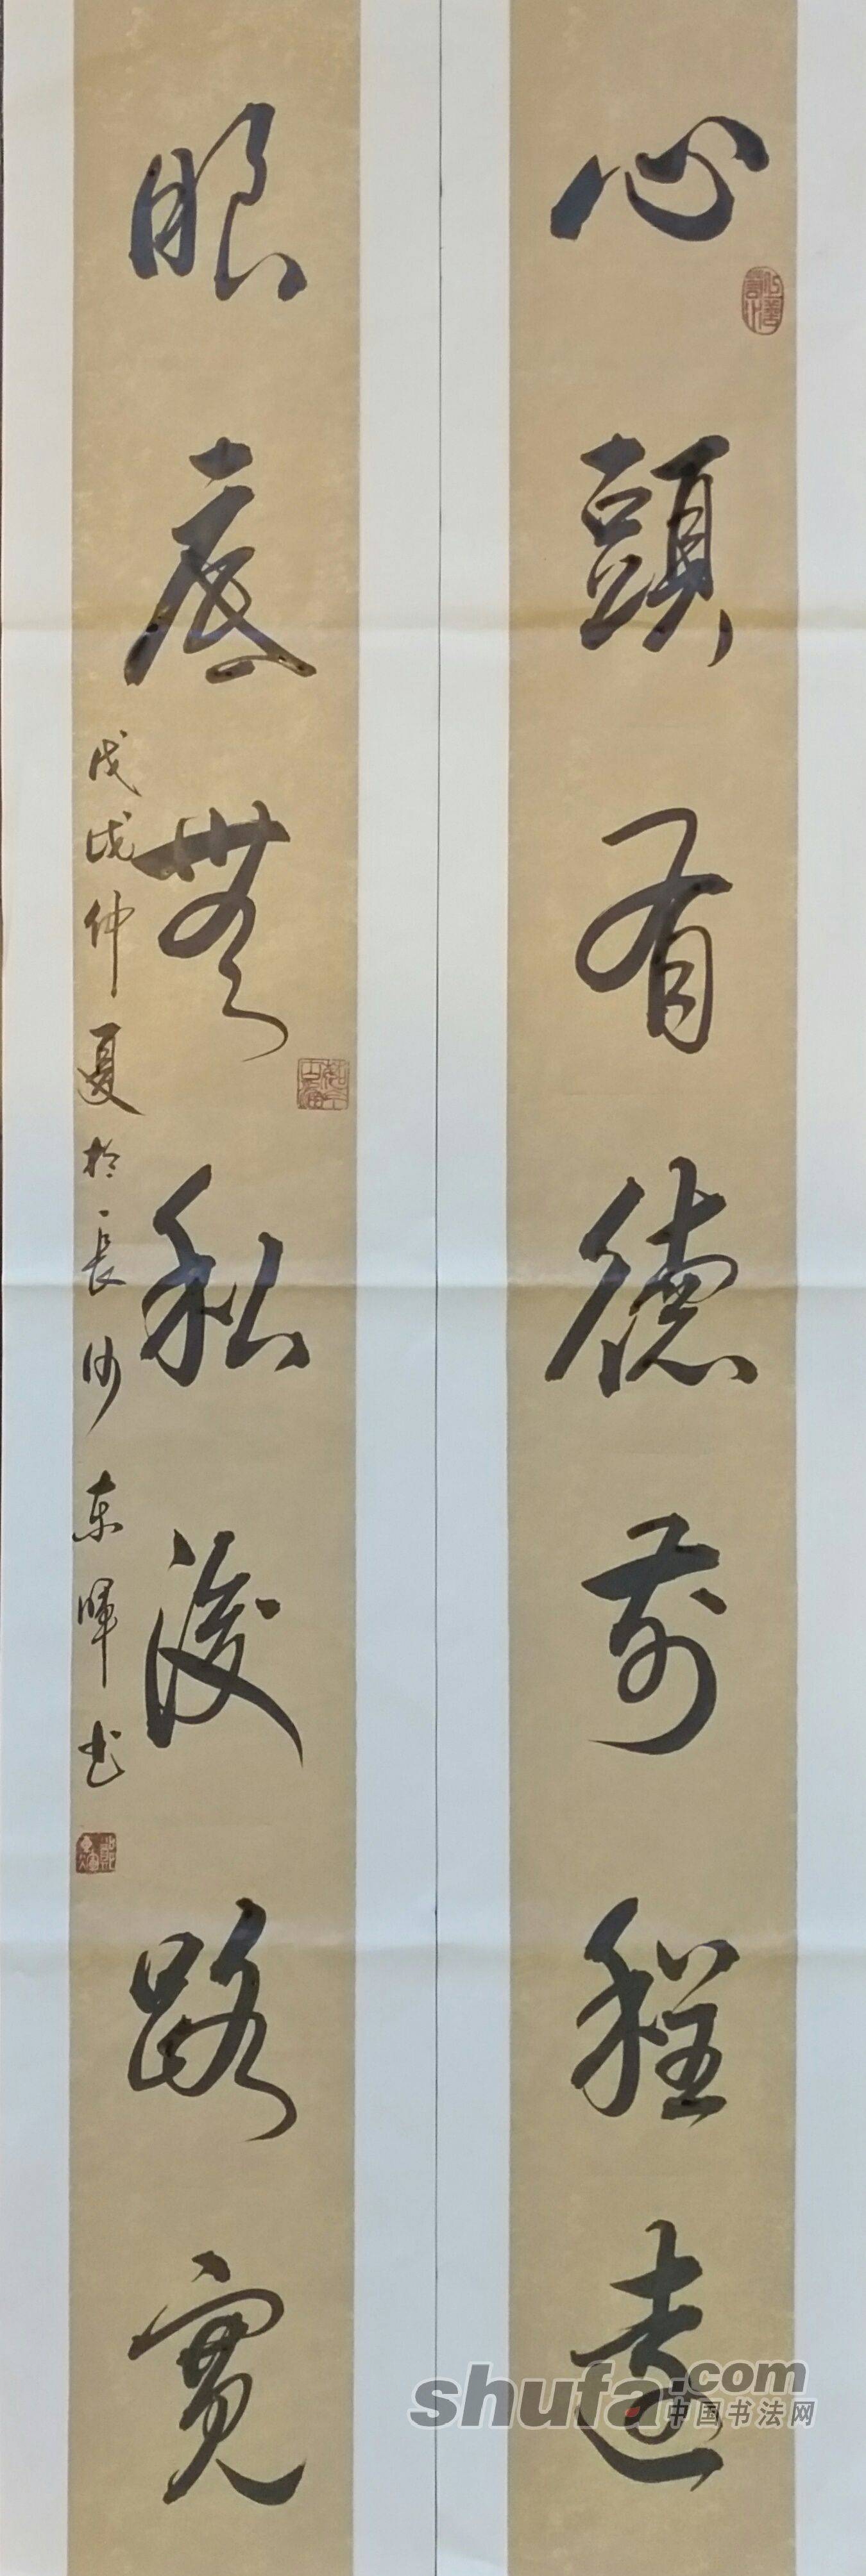 心頭有德前程遠
眼底無私後路寬
戊戌仲夏於長沙东暉书
shufa.com
中国书法网